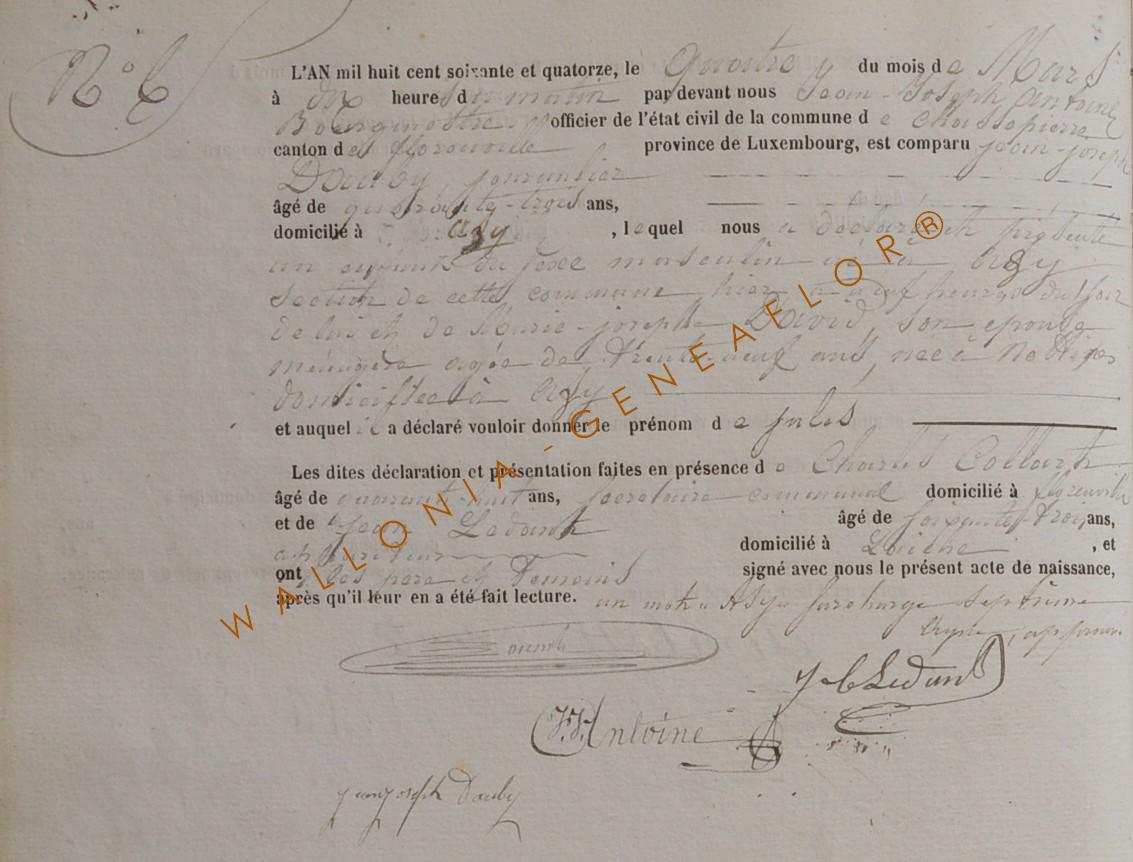 N° 6
L'AN mil huit cent soixante et quatorze, le quatre du mois de Mars
à dix heures du matin par devant nous Jean-Joseph Antoine
Bourgmestre officier de l'état civil de la commune de Chassepierre
canton de Florenville province de Luxembourg, est comparu Jean-Joseph
Dauby journalier
âgé de quarante-trois ans,
domicilié à Azy , lequel nous a déclaré et présenté
un enfant du sexe masculin né à Azy
section de cette commune hier à neuf heures du soir
de lui et de Marie-josephe David, son epouse
ménagère agée de trente-neuf ans, née à
domiciliée à Azy
et auquel il a déclaré vouloir donner le prénom de jules
Les dites déclaration et présentation faites en présence de Charles Collart
âgé de ans, secretaire communal domicilié à Florenville
et de Jean Ledant âgé de soixante trois ans,
domicilié à Laiche , et
ont les père et temoins signé avec nous le présent acte de naissance,
après qu'il leur en a été fait lecture. un mot Azy surchargé septième
ligne, approuvé
J b Ledant
J.J. Antoine
jean joseph Dauby
WALLONIA - GENEAFLOR®